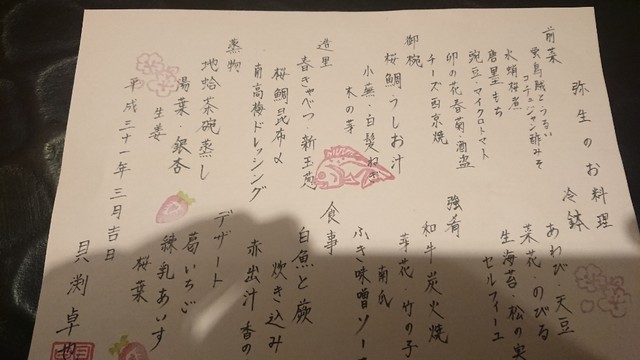 弥生のお料理
前菜
蛍烏賊とうるい
コチュジャン酢みそ
水蛸桜煮
唐墨もち
豌豆・マイクロトマト
卯の花春菊酒盗
チーズ西京焼
御椀
桜鯛うしお汁
小蕪・白髪ねぎ
木の芽
造里
春きゃべつ 新玉葱
桜鯛昆布〆
南高梅ドレッシング
蒸物
地蛤茶碗蒸し
湯葉・銀杏
生姜
冷鉢
あわび・天豆
菜花・のびる
生海苔・松の実
セルフィーユ
強肴
和牛炭火焼
芽花・竹の子
南瓜
ふき味噌ソー
食事
白魚と蕨
炊き込み
赤出汁 香の
デザート
葛いちご
練乳あいす
桜葉
平成三十一年 三月吉日
貝渕卓也